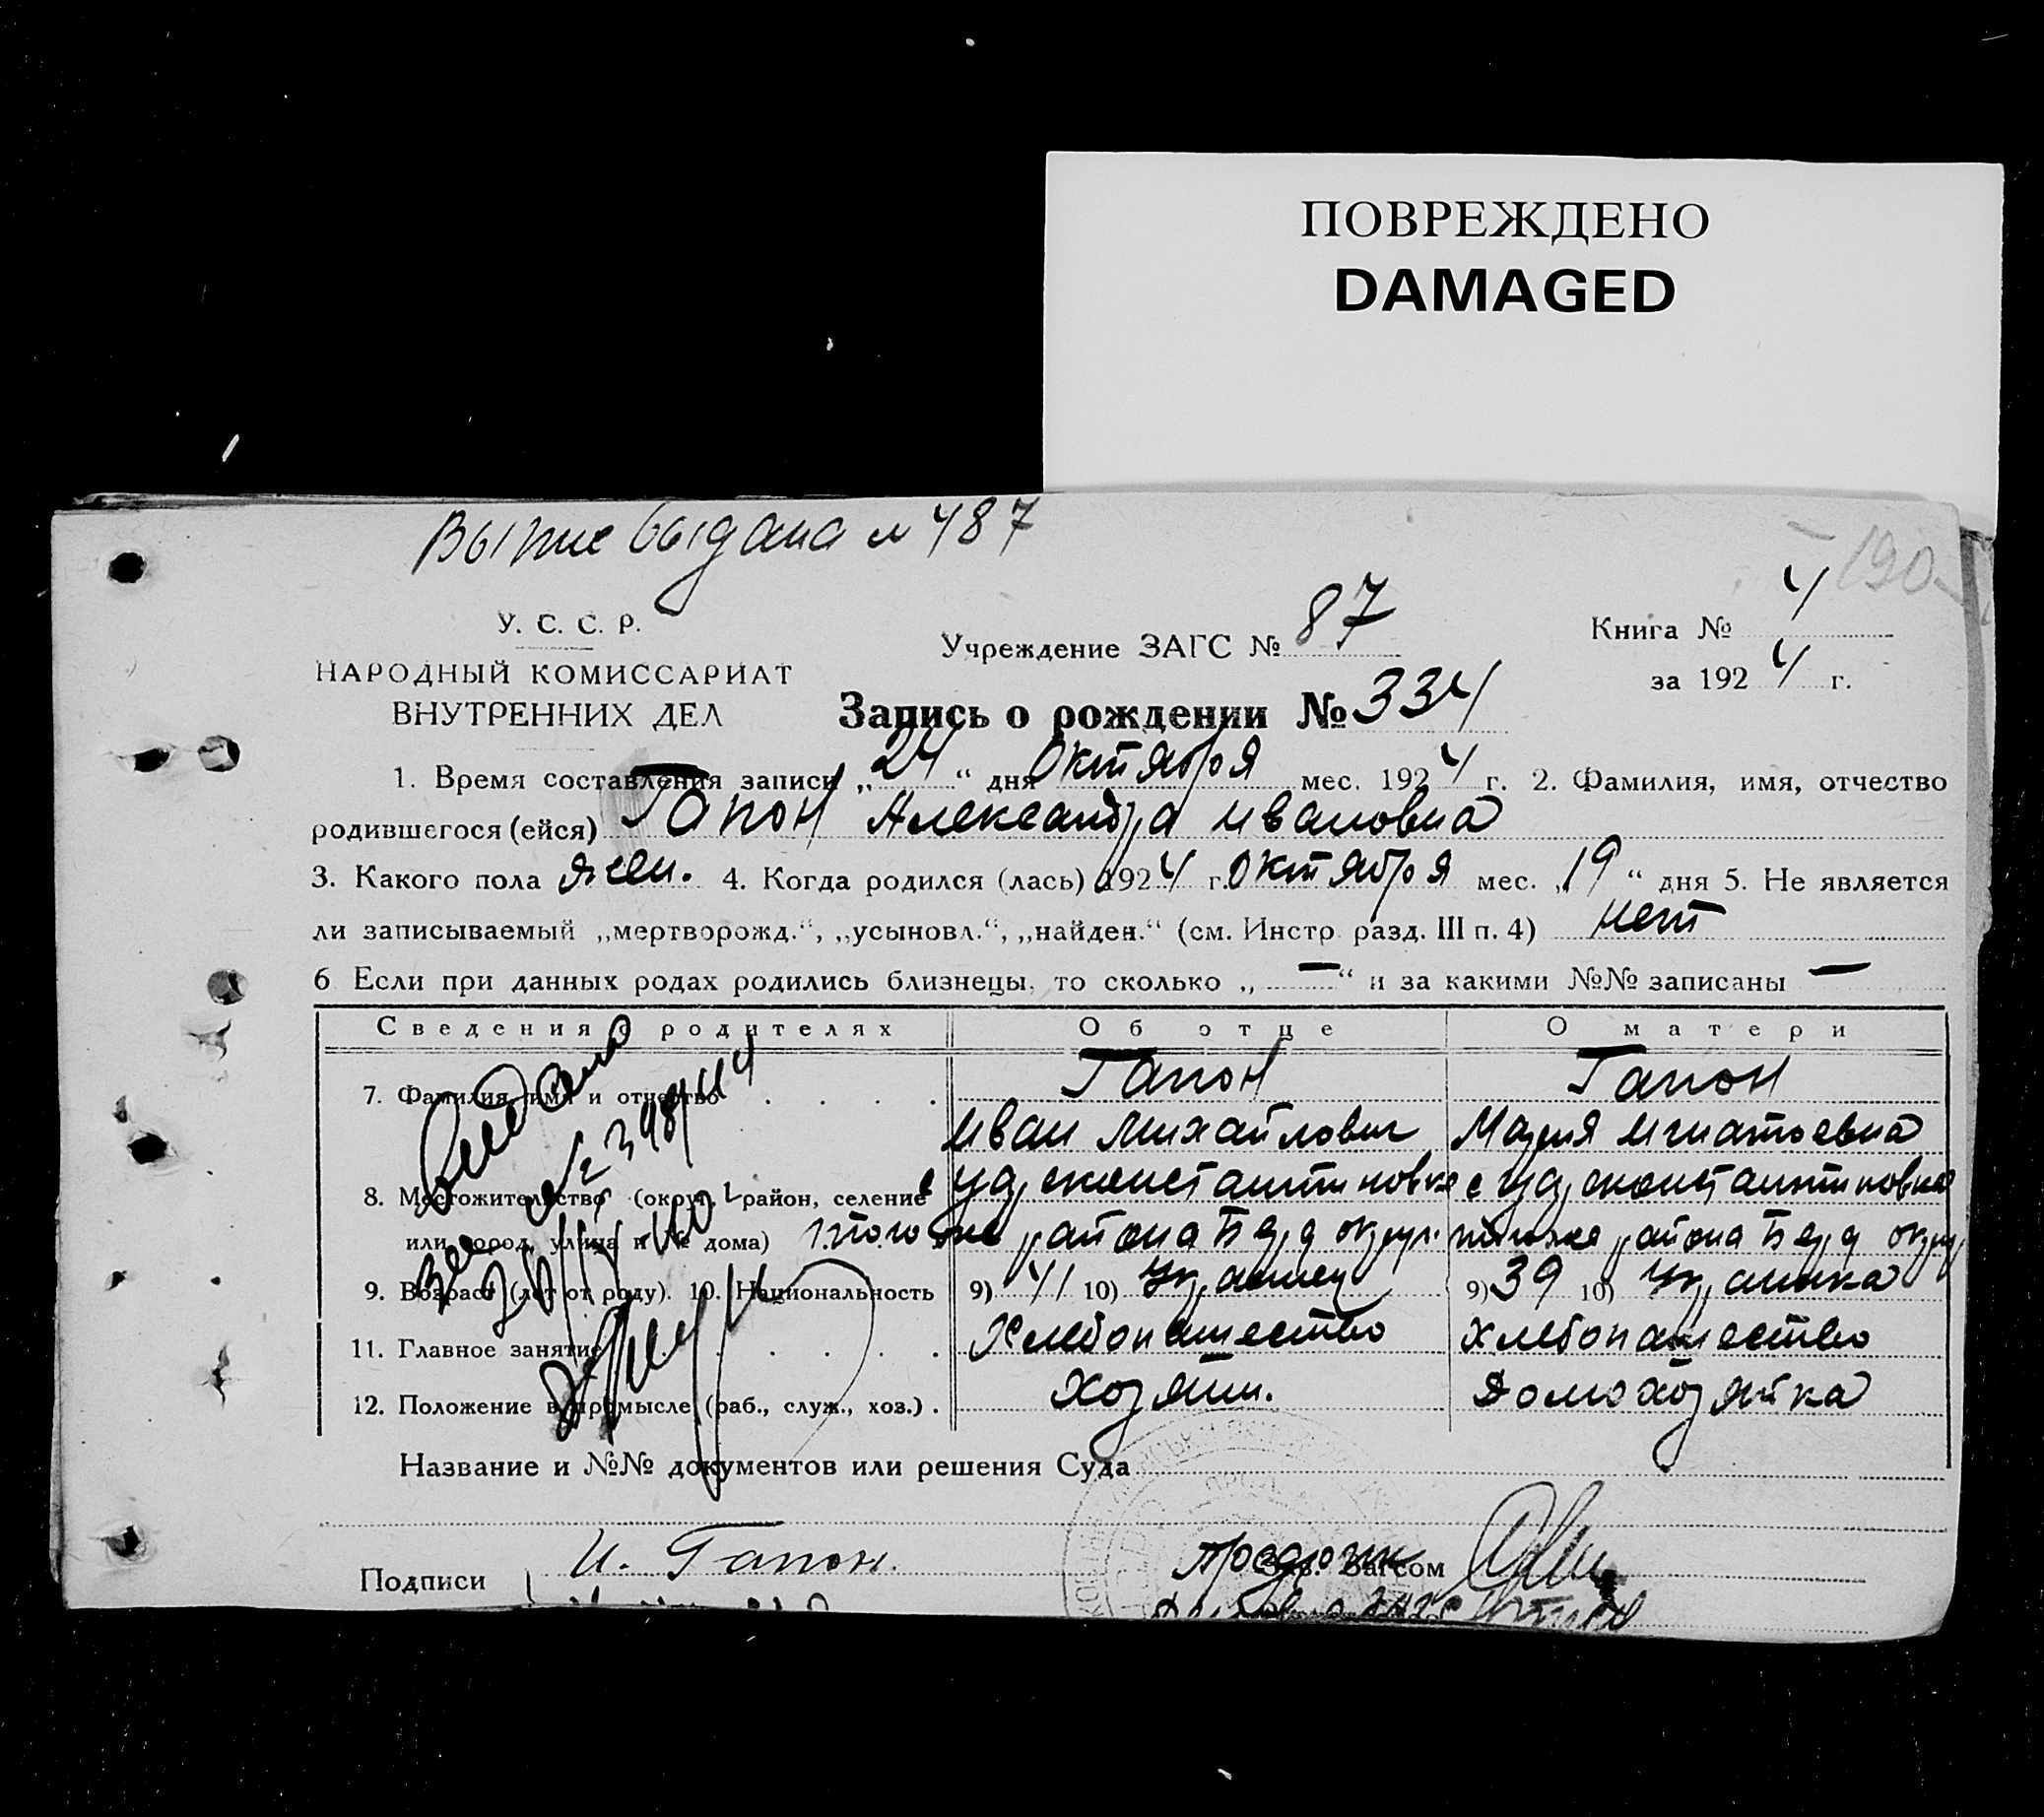 ПОВРЕЖДЕНО
DAMAGED
выдана № 487
190
У. С. С. Р.
НАРОДНЫЙ КОМИССАРИАТ
ВНУТРЕННИХ ДЕЛ
Учреждение ЗАГС № 87
Книга № 4
за 1924 г.
Запись о рождении № 334
1. Время составления записи „24“ дня Октября мес. 1924 г. 2. Фамилия, имя, отчество
родившегося (ейся) Гапон Александра Ивановна
3. Какого пола жен. 4. Когда родился (лась) 1924 г. Октября мес. „19“ дня 5. Не является
ли записываемый „мертворожд.“, „усыновл.“, „найден.“ (см. Инстр разд. III п. 4) нет
6 Если при данных родах родились близнецы, то сколько „—“ и за какими №№ записаны —
Сведения о родителях Об отце О матери
7. Фамилия, имя и отчество Гапон Гапон
Иван Михайлович Мария Игнатьевна
8. Местожительство (округ, район, селение
или город, улица и № дома) того же района Берд округ. района Берд округ
9. Возраст (лет от роду). 10. Национальность 9) 41 10) Украинец 9) 39 10) Украинка
11. Главное занятие Хлебопашество Хлебопашество
12. Положение в промысле (раб., служ., хоз.) Хозяин. Домохозяйка
Название и №№ документов или решения Суда
Подписи И. Гапон. Зав. Загсом